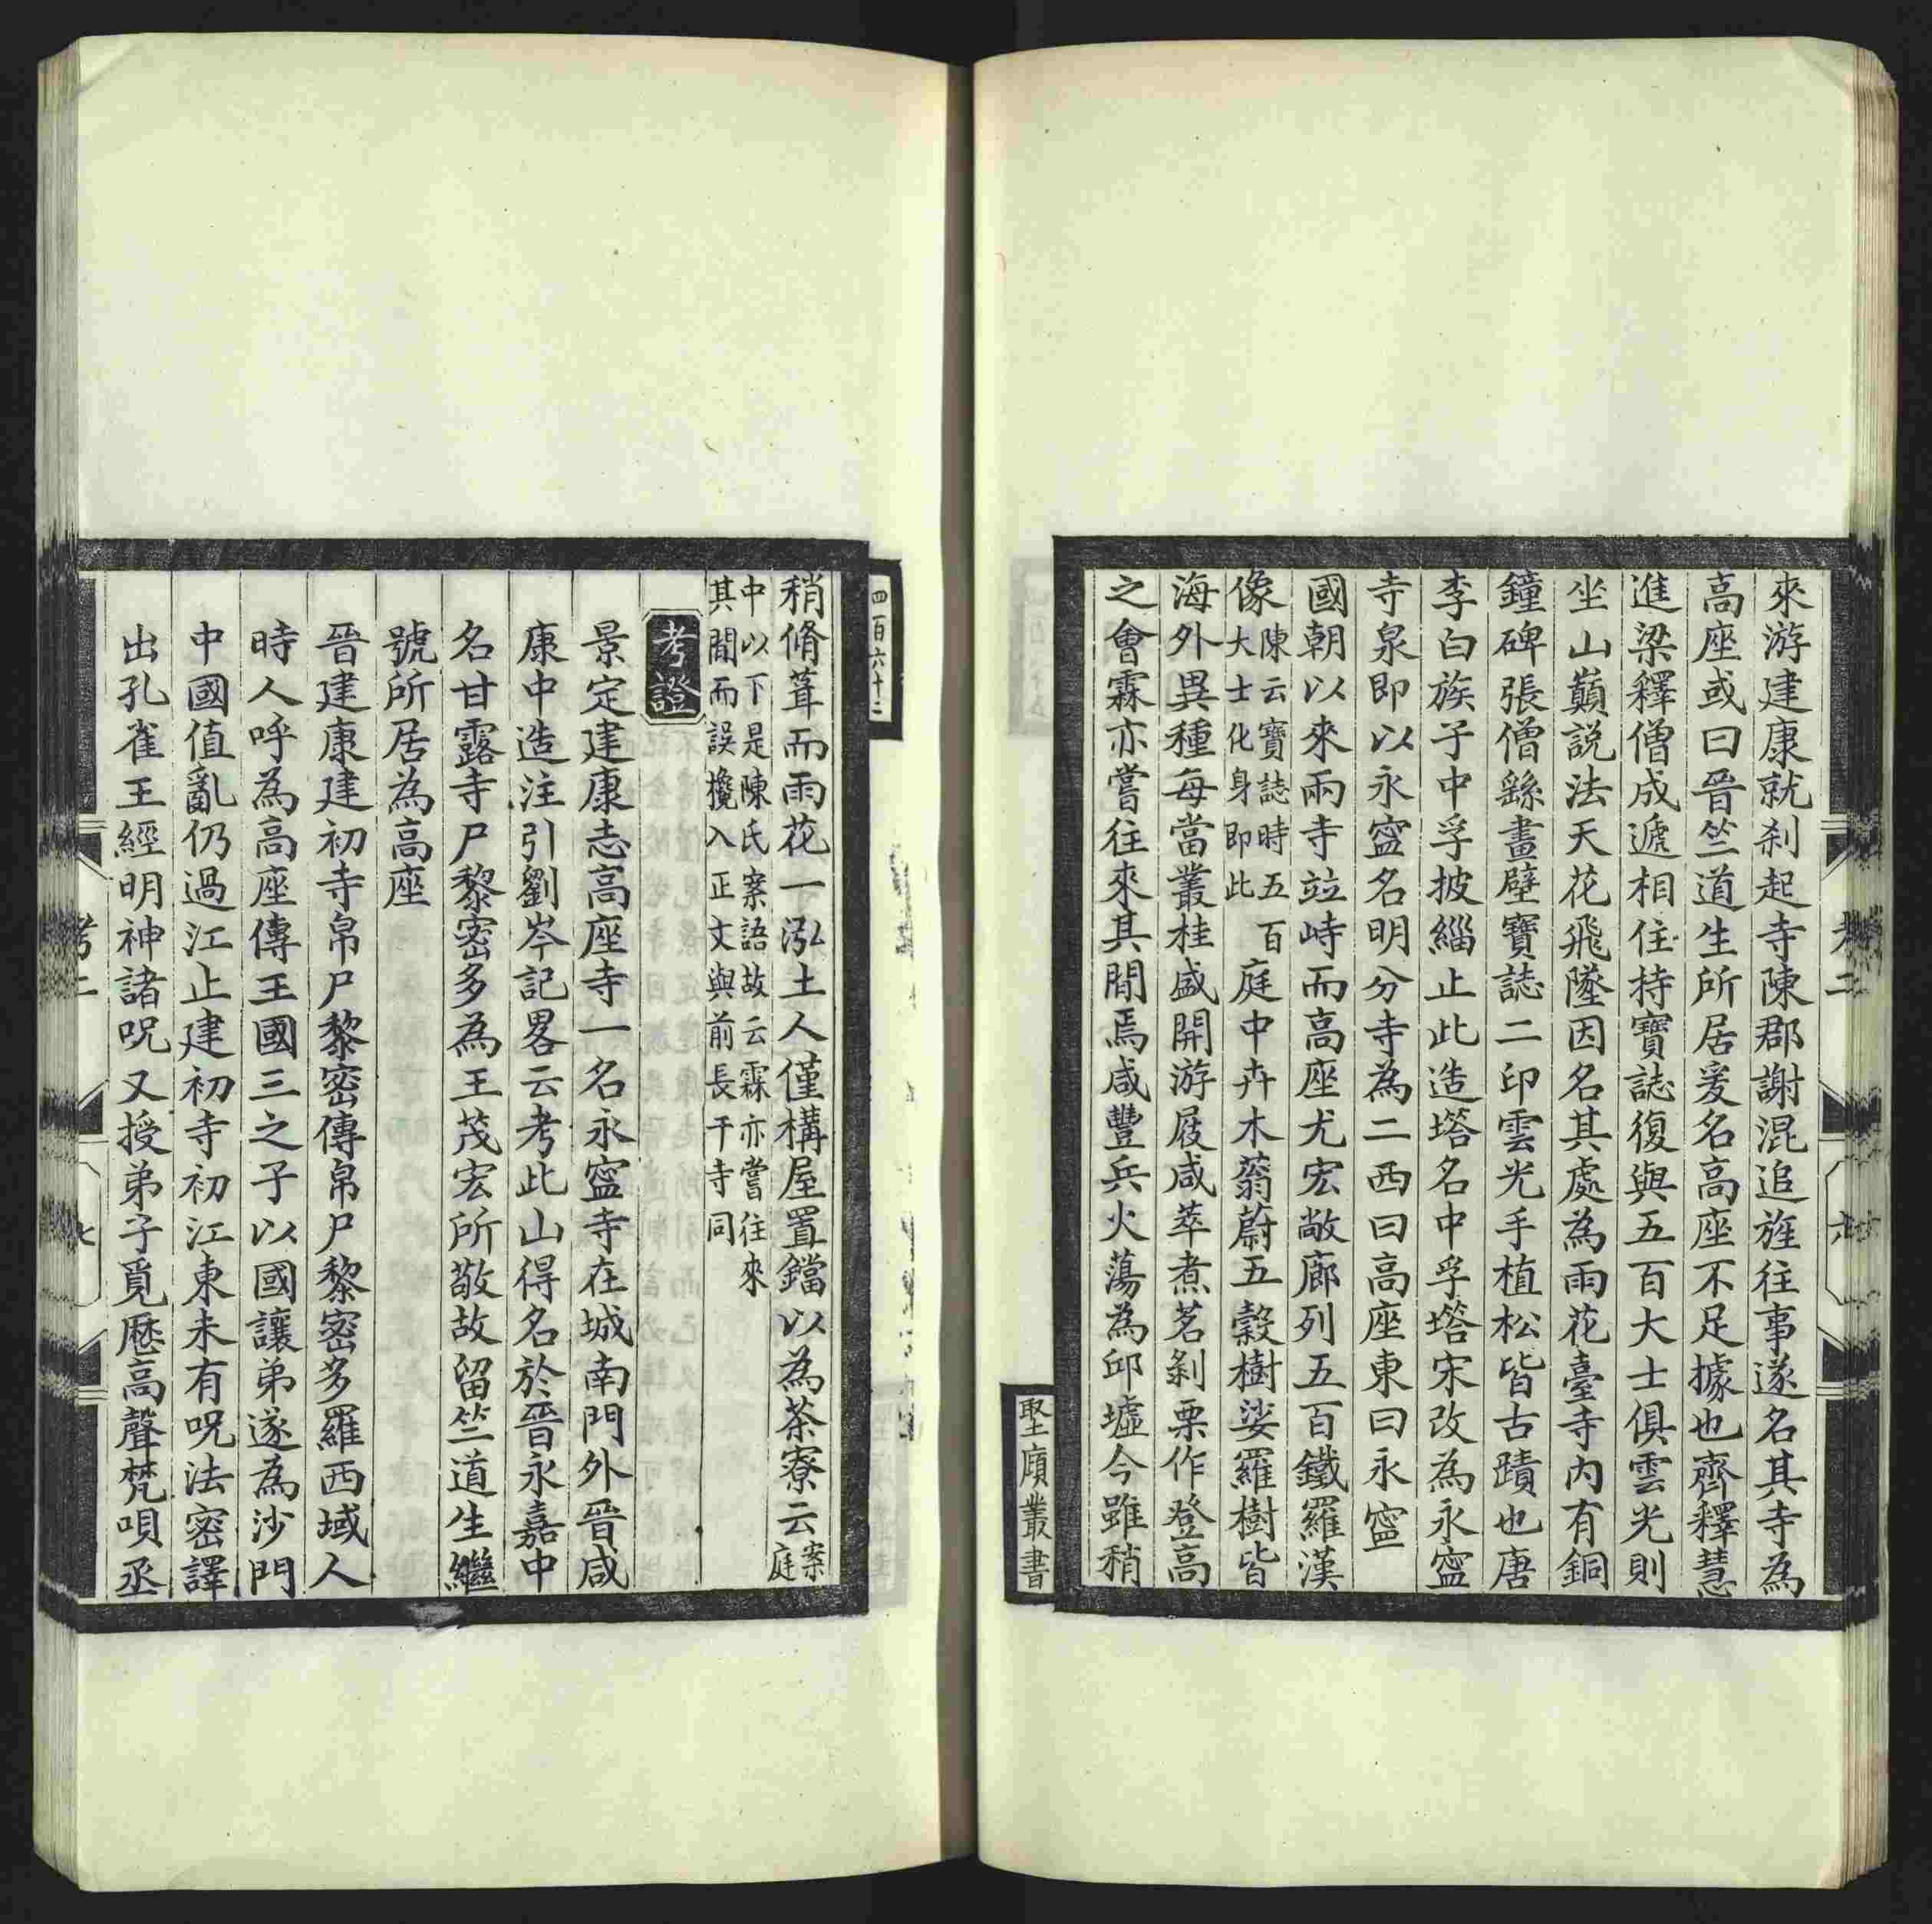 來游建康就剎起寺陳郡謝混追旌往事遂名其寺為
高座或曰晉竺道生所居爰名高座不足據也齊釋慧
進梁釋僧成遞相住持寶誌復與五百大士俱雲光則
坐山巔說法天花飛墜因名其處為雨花臺寺內有銅
鐘碑張僧繇畫壁寶誌二印雲光手植松皆古蹟也唐
李白族子中孚披緇止此造塔名中孚塔宋改為永寍
寺泉即以永寍名明分寺為二西曰高座東曰永寍
國朝以來兩寺竝峙而高座尤宏敞廊列五百鐵羅漢
像陳云寶誌時五百大士化身即此庭中卉木蓊蔚五穀樹娑羅樹皆
海外異種每當叢桂盛開游屐咸萃煮茗剝栗作登高
之會霖亦嘗往來其間焉咸豐兵火蕩為邱墟今雖稍
堅頎叢書
四百六十二
稍脩葺而雨花一泓土人僅構屋置鐺以為茶寮云案庭
中以下是陳氏案語故云霖亦嘗往來
其間而誤攙入正文與前長干寺同
考證
景定建康志高座寺一名永寍寺在城南門外晉咸
康中造注引劉岑記畧云考此山得名於晉永嘉中
名甘露寺尸黎密多為王茂宏所敬故留竺道生繼
號所居為高座
晉建康建初寺帛尸黎密傳帛尸黎密多羅西域人
時人呼為高座傳王國三之子以國讓弟遂為沙門
中國值亂仍過江止建初寺初江東未有呪法密譯
出孔雀王經明神諸呪又授弟子覓歷高聲梵唄丞